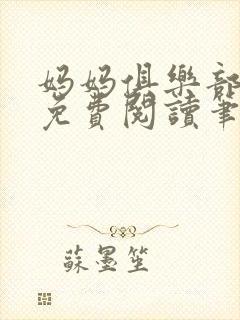 妈妈俱樂部
免費閱讀筆
蘇墨笙